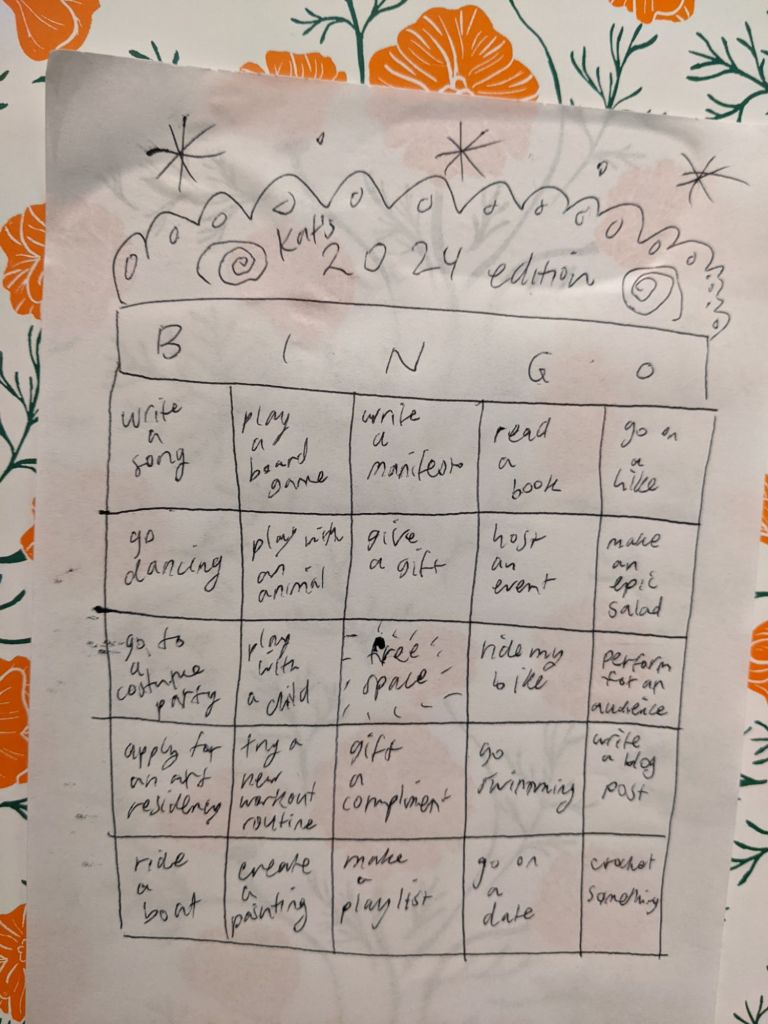 Kat's
2024 edition
B I N G O
write
a
song
play
a
board
game
write
a
manifesto
read
a
book
go on
a
hike
go
dancing
play with
an
animal
give
a gift
host
an
event
make
an
epic
salad
go to
a
costume
party
play
with
a child
free
space
ride my
bike
perform
for an
audience
apply for
an art
residency
try a
new
workout
routine
gift
a
compliment
go
swimming
write
a blog
post
ride
a
boat
create
a
painting
make
a
playlist
go on
a
date
crochet
something